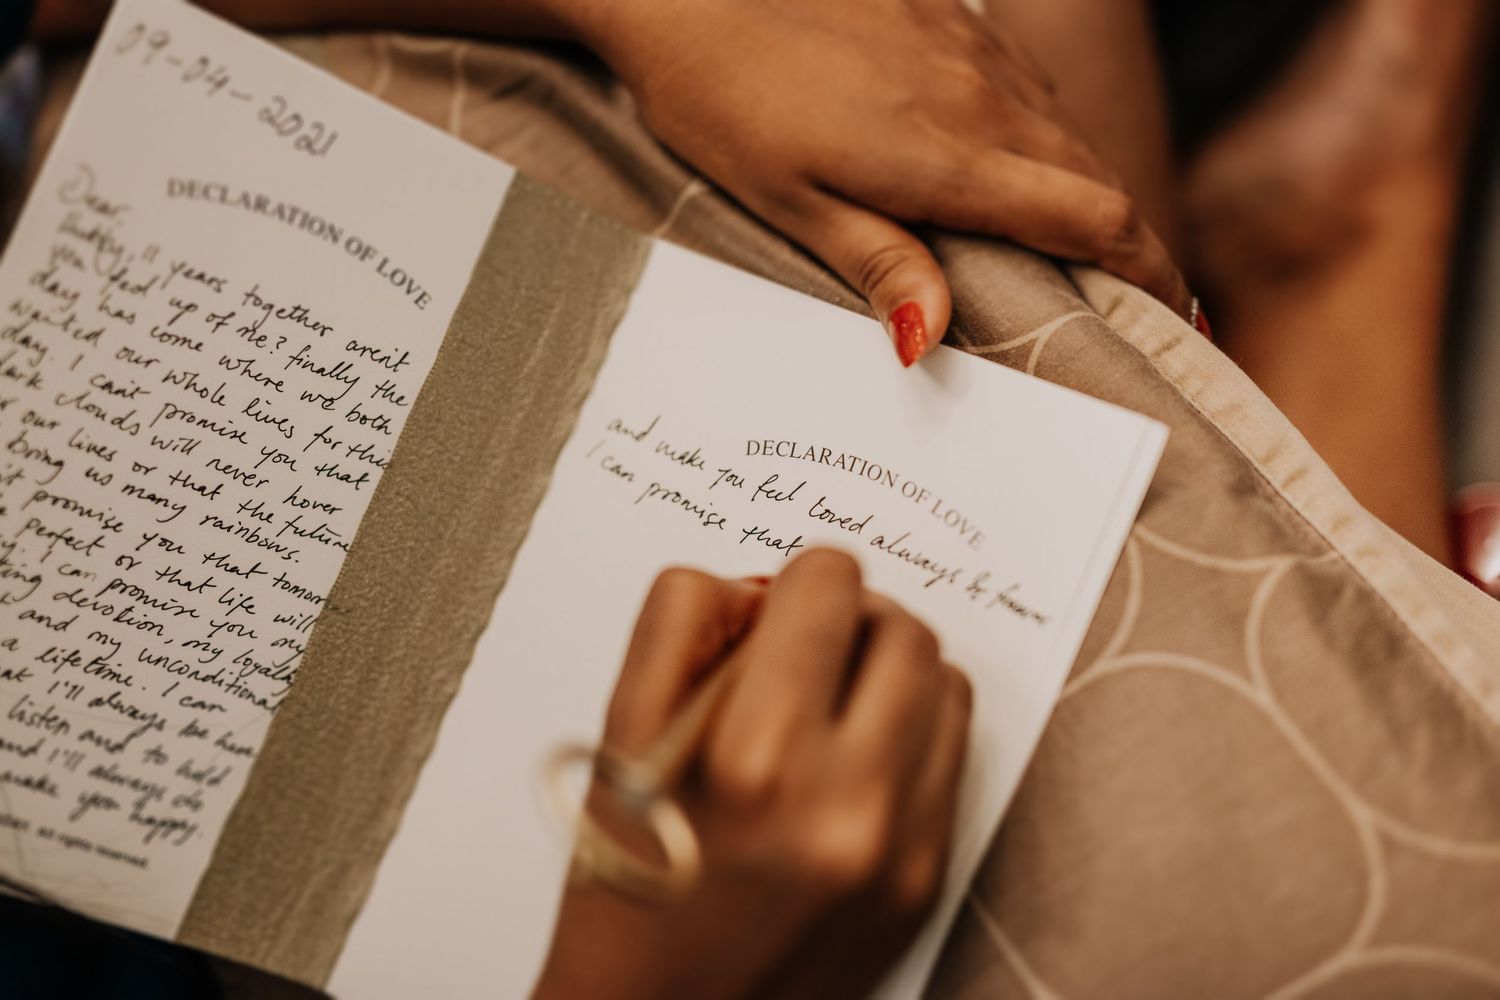 09-04-2021
DECLARATION OF LOVE
Dear
Hubby, 11 years together arent
you fed up of me? finally the
day has come where we both
wanted our whole lives for this
day. I cant promise you that
dark clouds will never hover
our lives or that the future
bring us many rainbows.
promise you that tomorr
perfect or that life will
can promise you my
devotion, my loyalty
and my unconditional
a lifetime. I can
I'll always be here
listen and to hold
and I'll always do
make you happy.
All rights reserved.
DECLARATION OF LOVE
and make you feel loved always &
I can promise that